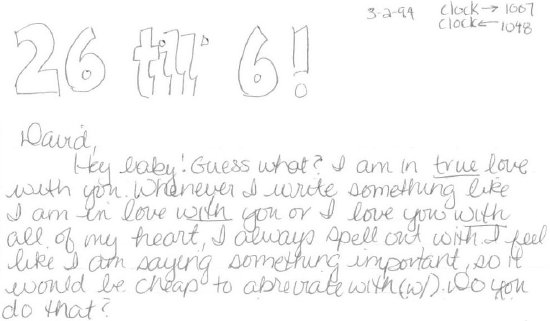 3-2-94 clock→1007
clock←1048
26 till 6!
David,
Hey baby! Guess what? I am in true love
with you. Whenever I wrote something like
I am in love with you or I love you with
all of my heart, I always spell out with. I feel
like I am saying something important, so it
would be cheap to abreviate with (w/). Do you
do that?